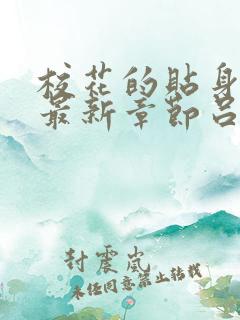 校花的贴身
最新章节吕
封震岚
未经同意禁止转载